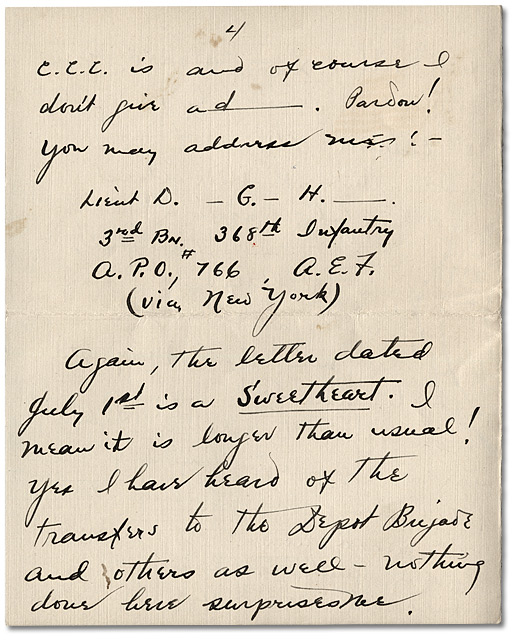 4
C.C.C. is and of course I
don't give a d____. Pardon!
You may address me: -
Lieut D. - G. - H. ____.
3rd Bn. 368th Infantry
A.P.O., #766 A.E.F.
(via, New York)
Again, the letter dated
July 1st is a Sweetheart. I
mean it is longer than usual!
Yes I have heard of the
transfers to the Depot Brigade
and others as well - nothing
done here surprises me.